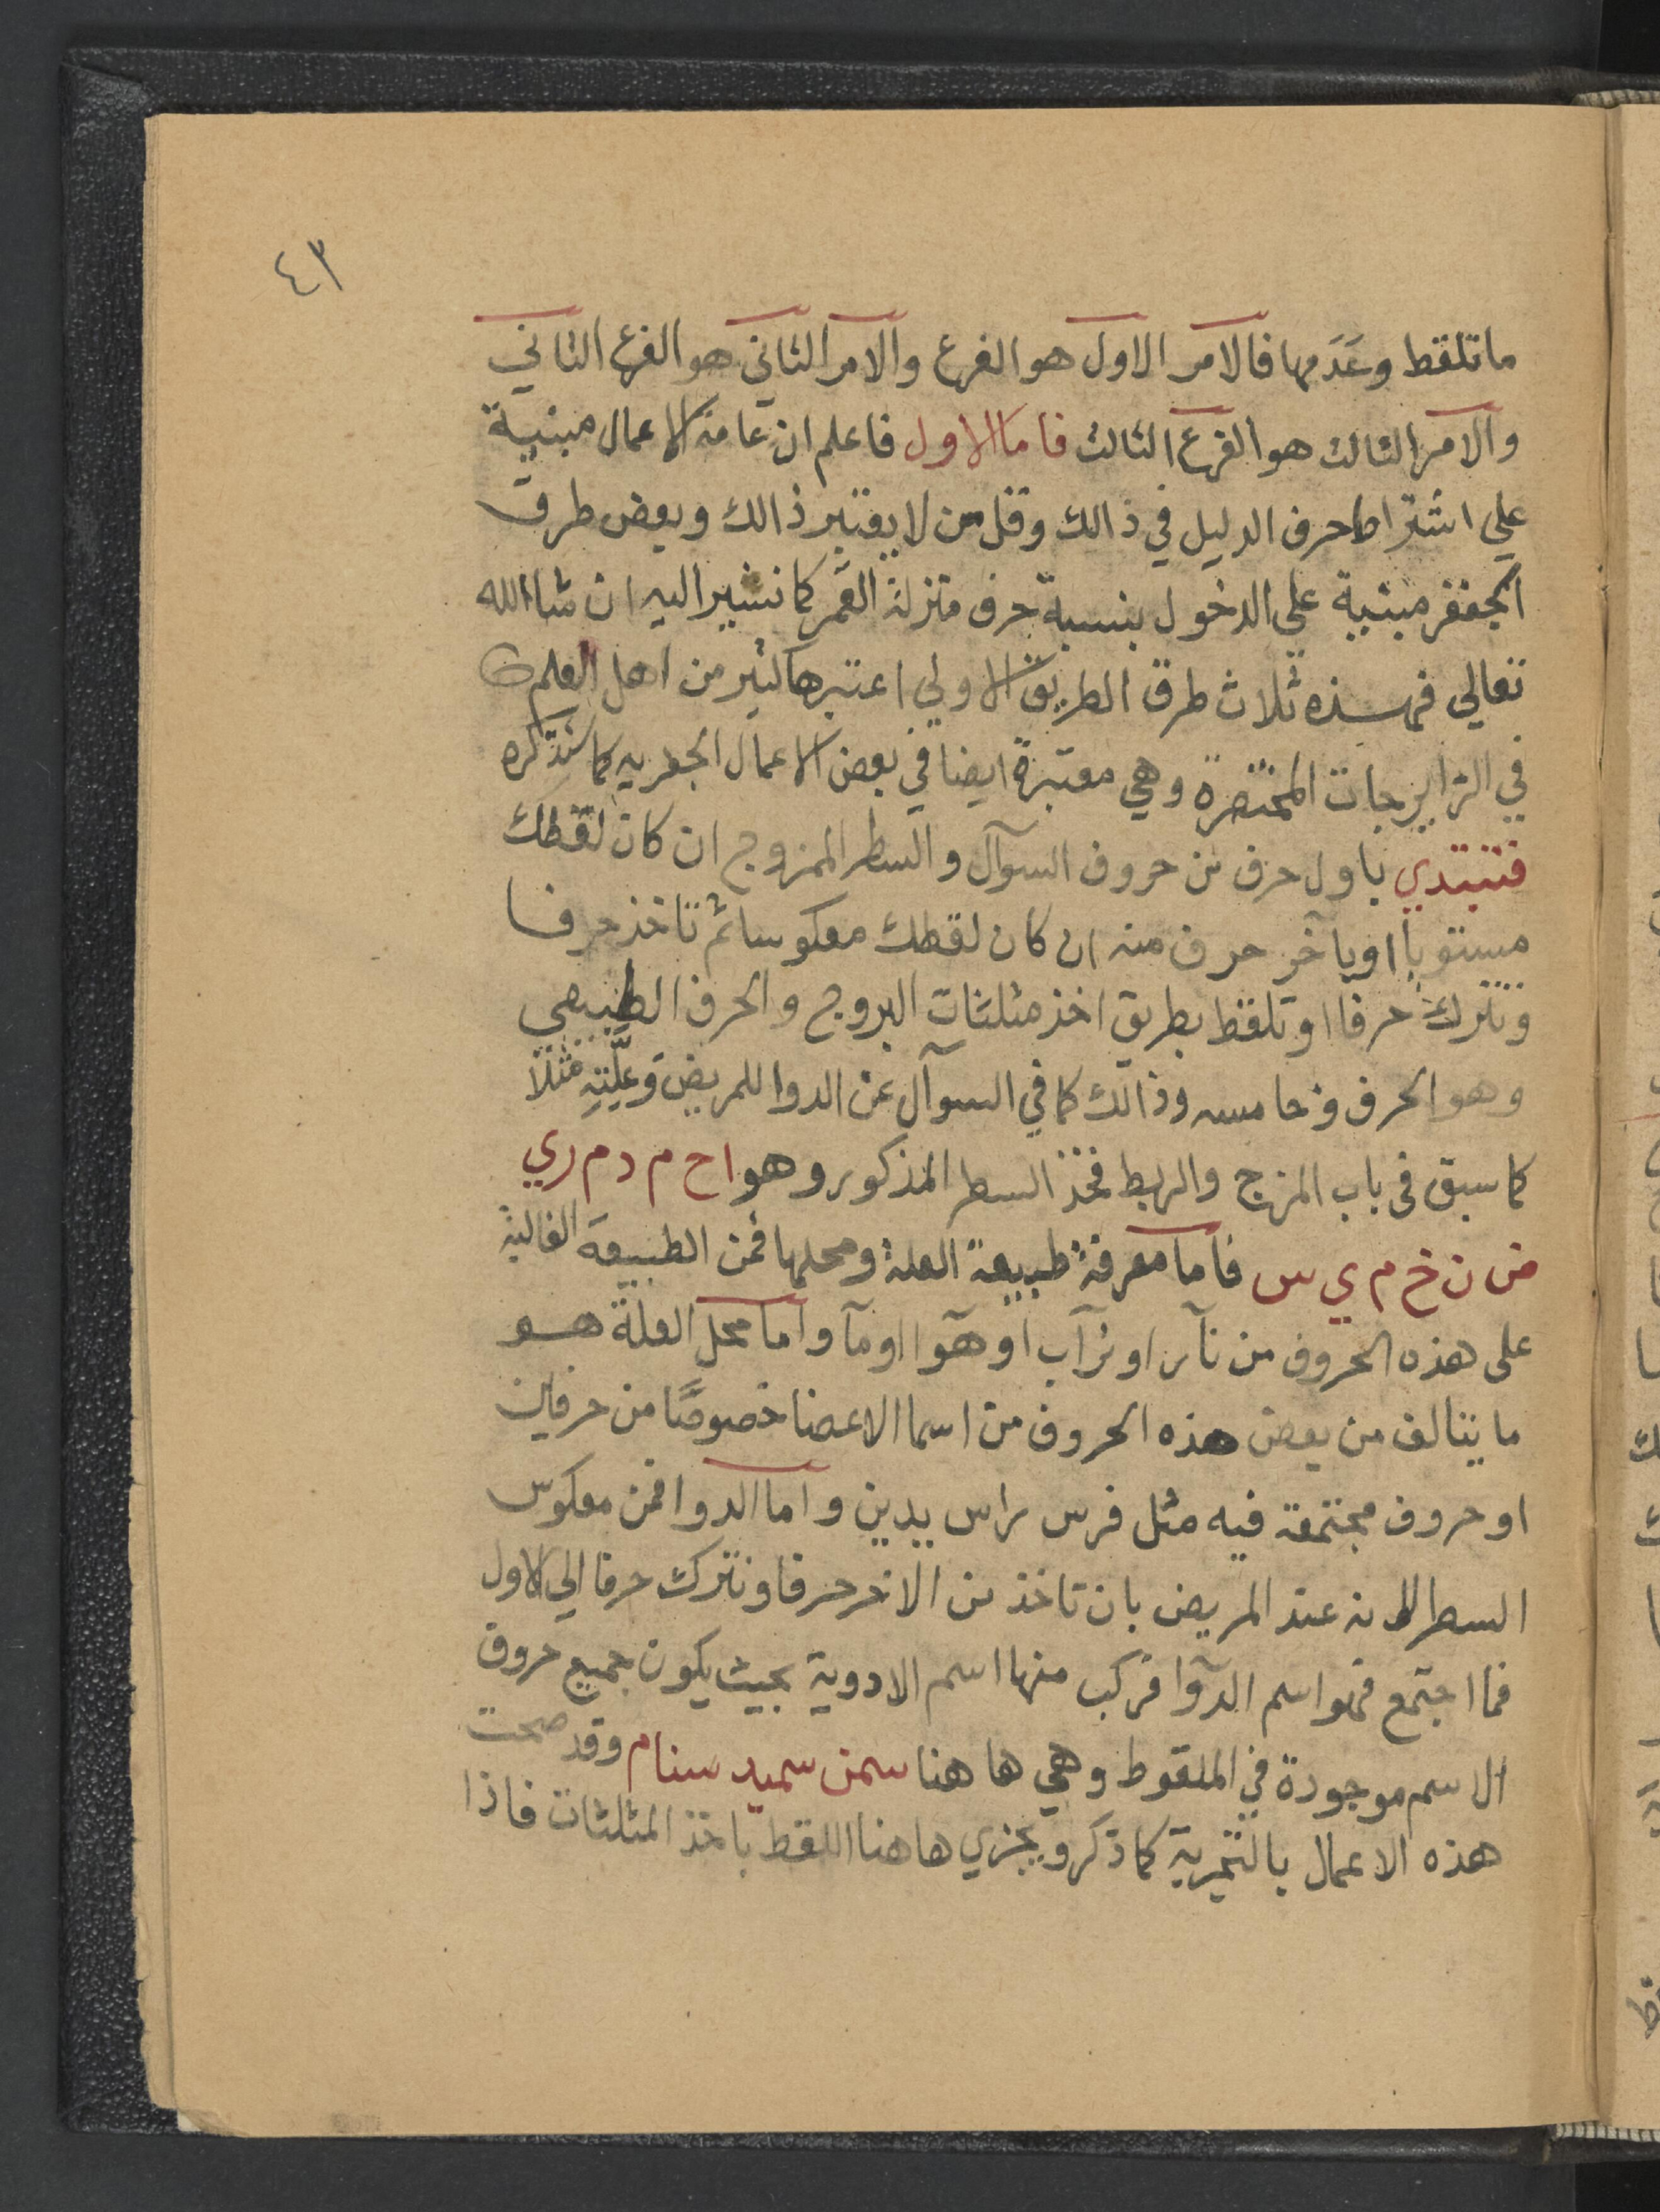 ٤٣
ما تلقط وعَدَمها فالامر الاول هو الفرع والامر الثاني هو الفرع الثاني
والامر الثالث هو الفرع الثالث فاما الاول فاعلم ان عامة الاعمال مبنية
علي اشتراط حرف الدليل في ذالك وقل من لا يعتبر ذالك وبعض طرق
الجفر مبنية علي الدخول بنسبة حرف منزلة القمر كما نشير اليه ان شا الله
تعالي فهذه ثلاث طرق الطريق الاولي اعتبرها كثير من اهل العلم
في الزايرجات المختصرة وهي معتبرة ايضا في بعض الاعمال الجفريه كما سنذكره
فتبتدي باول حرف من حروف السوآل والسطر الممزوج ان كان لقطك
مستويا او بآخر حرف منه ان كان لقطك معكوسا ثم تاخذ حرفا
وتترك حرفا او تلقط بطريق اخذ مثلثات البروج والحرف الطبيعي
وهو الحرف وخامسه وذالك كما في السوآل عن الدوا للمريض وعلّتِهِ مثلا
كما سبق في باب المزج والربط فخذ السطر المذكور وهو ا ح م د م ر ي
ض ن خ م ي س فاما معرفة طبيعة العلة ومحلها فمن الطبيعة الغالبة
على هذه الحروف من نآر او ترآب او هوآ او مآ واما محل العلة هو
ما يتالف من بعض هذه الحروف من اسما الاعضا خصوصًا من حرفين
او حروف مجتمعة فيه مثل فرس راس يدين واما الدوا فمن معكوس
السطر عند المريض بان تاخذ من الاخر حرفا وتترك حرفا الي الاول
فما اجتمع فهو اسم الدوآ فركب منها اسم الادوية بحيث يكون جميع حروف
الاسم موجودة في الملقوط وهي ها هنا سمن سميد سنام وقد صحت
هذه الاعمال بالتجربة كما ذكر ويجزي ها هنا اللقط باخذ المثلثات فاذا